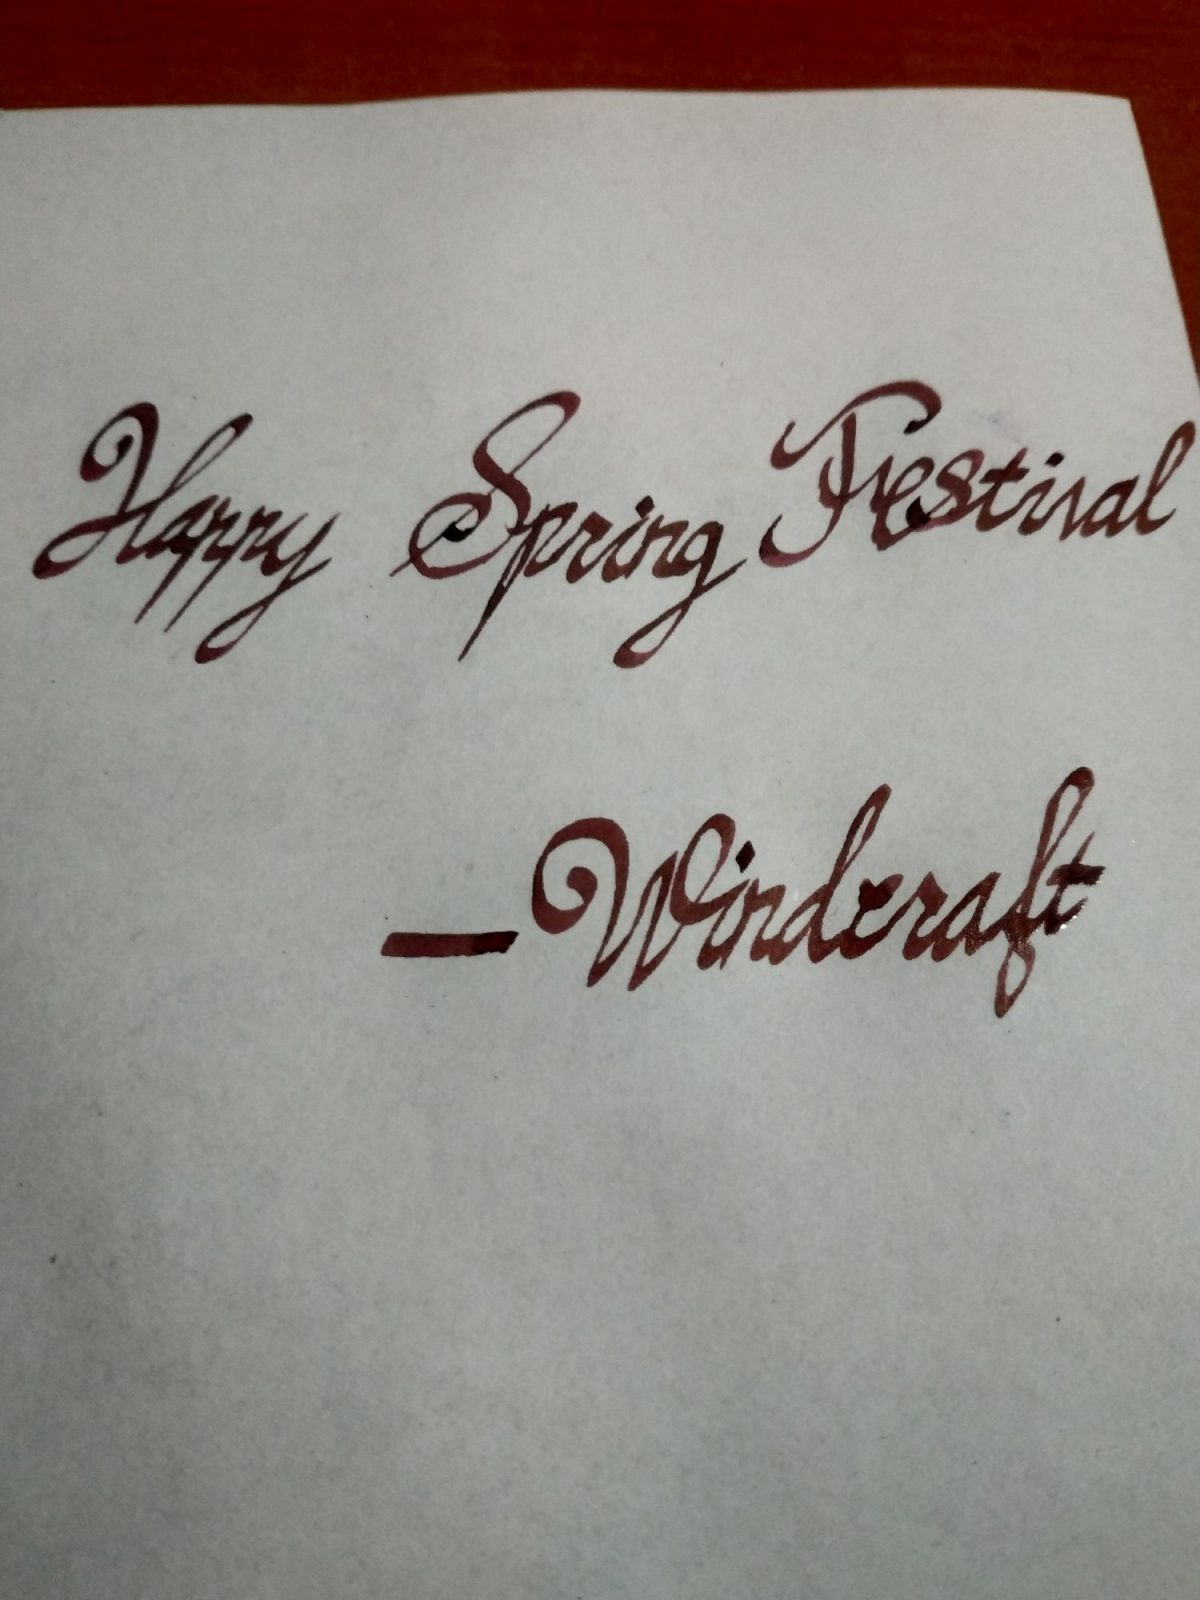 Happy Spring Festival
—Windcraft